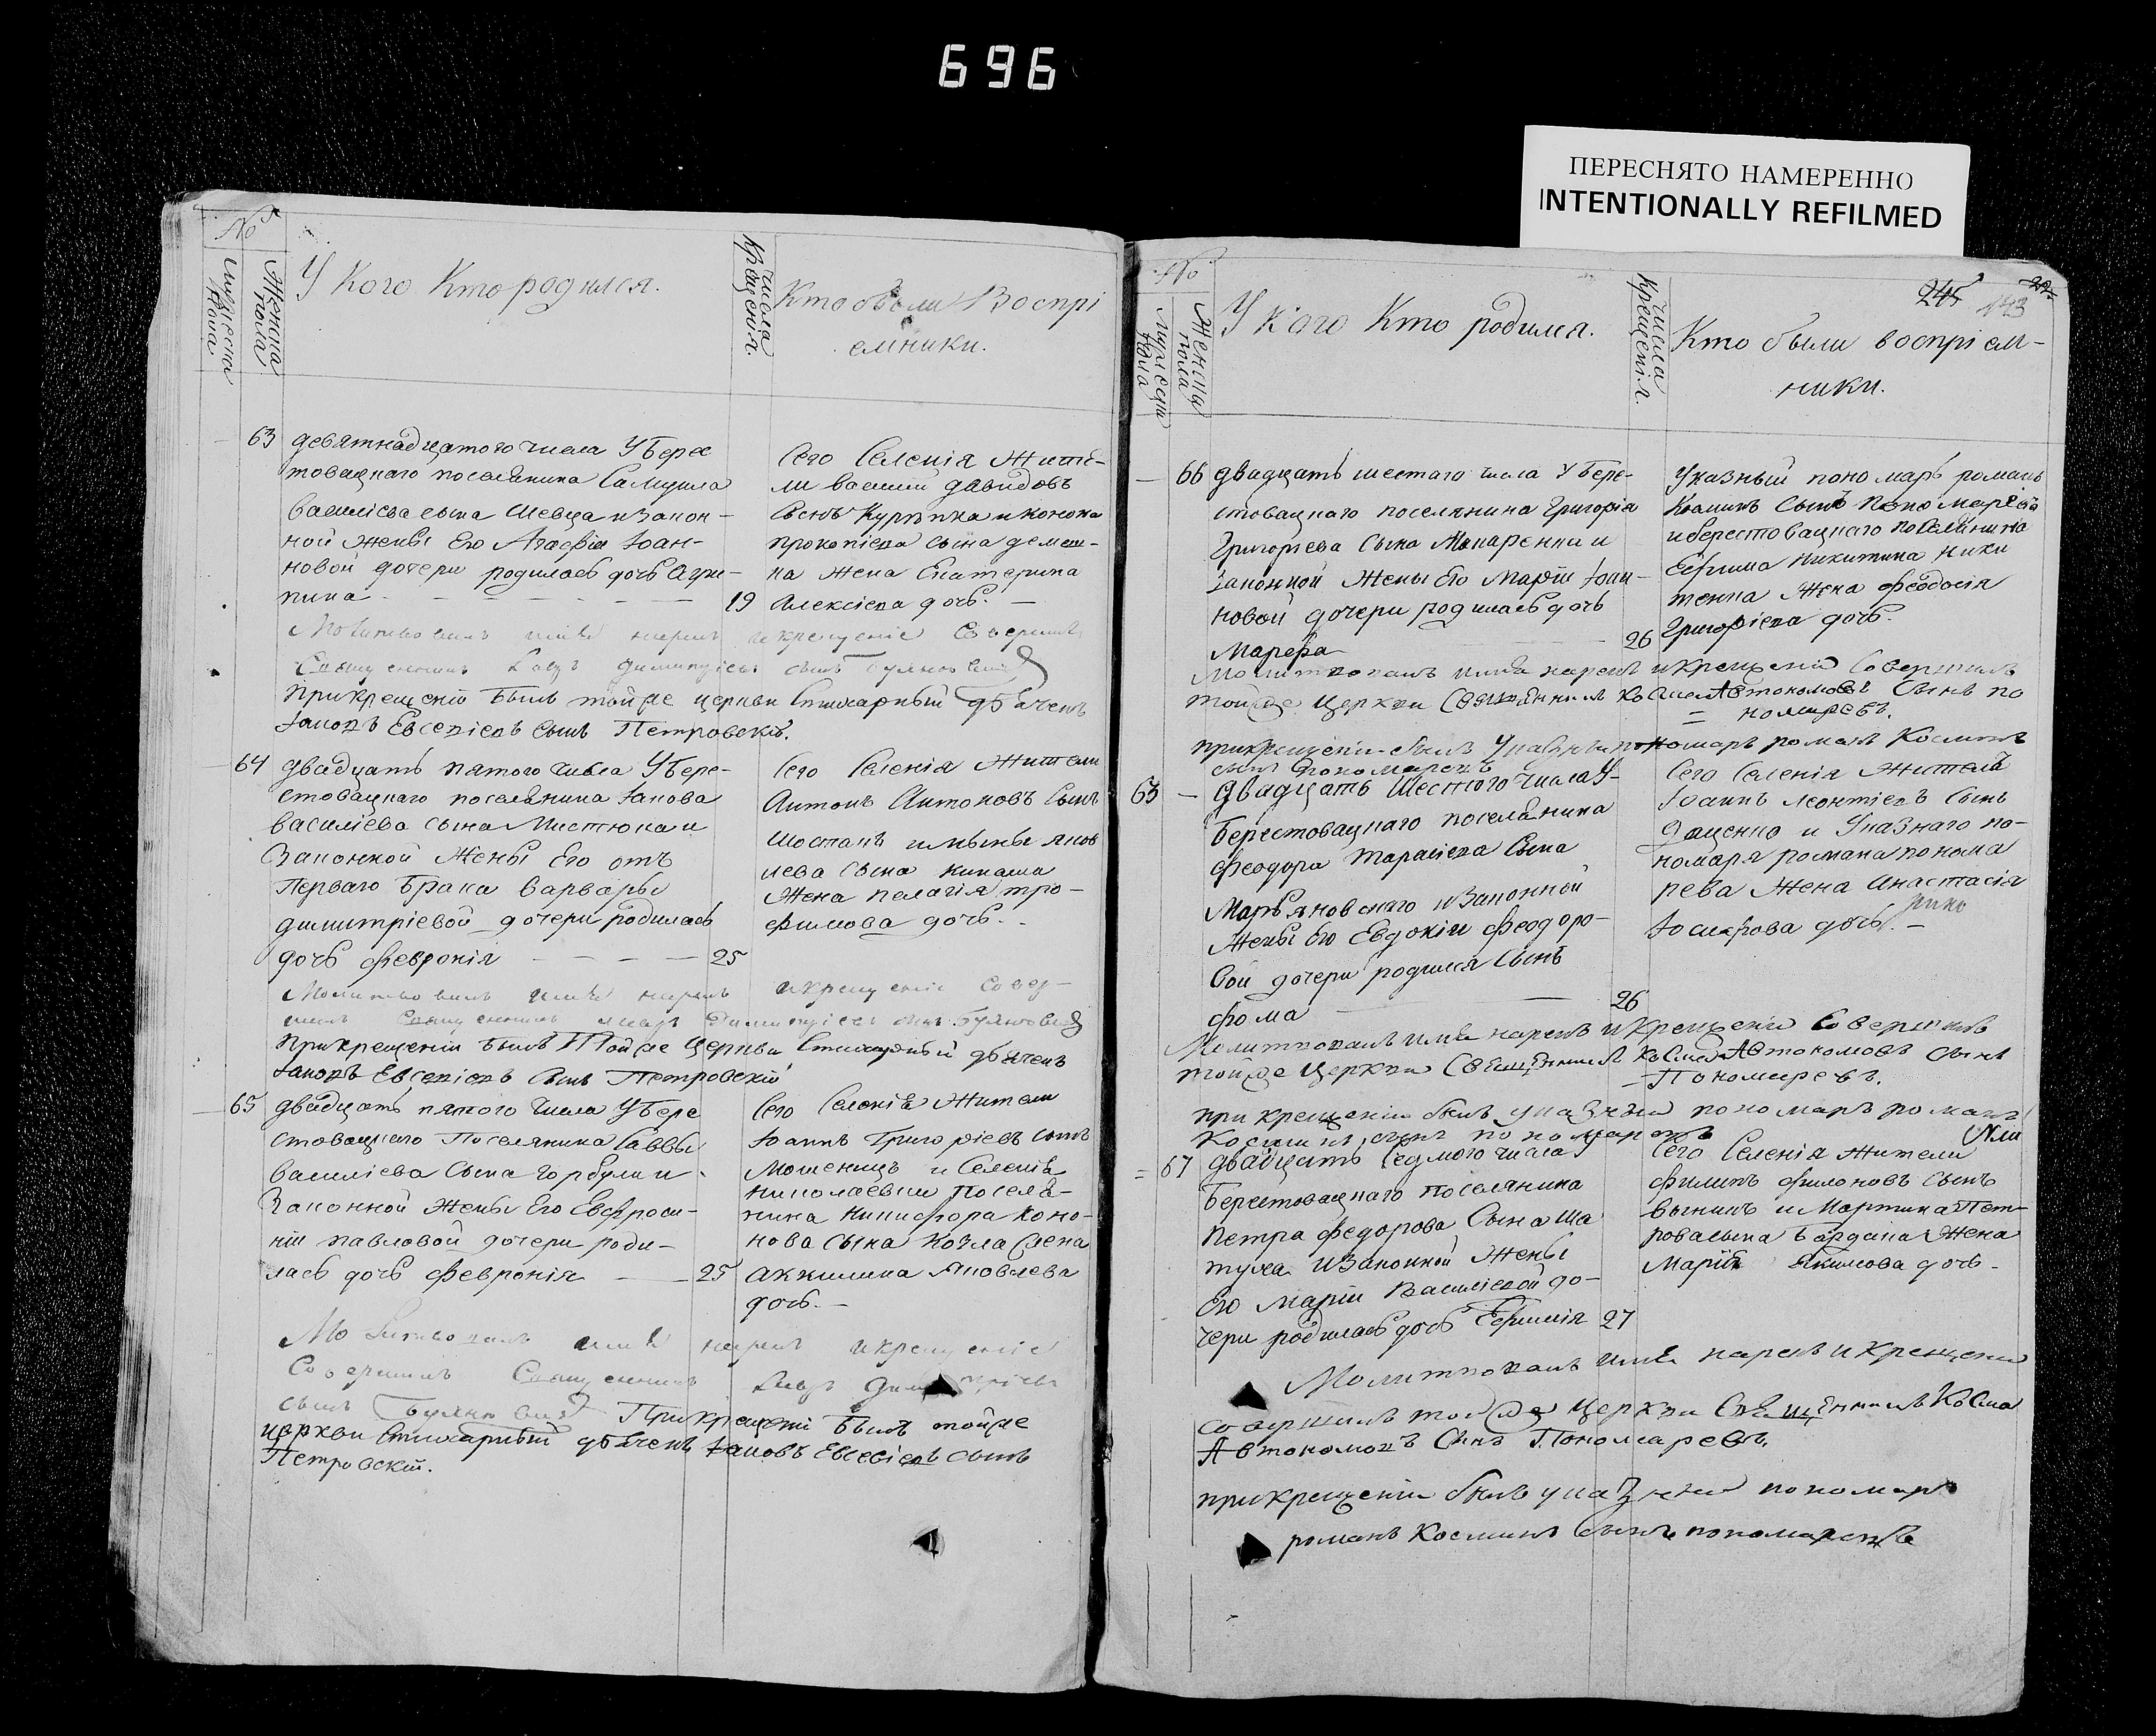 696
ПЕРЕСНЯТО НАМЕРЕННО
INTENTIONALLY REFILMED
№
Мужеска пола
Женска пола
У Кого Кто родился.
Числа Крещенія.
Кто были Воспрі
емники.
63 девятнадцатого числа У Бере
стовацкаго поселянина Самуила
Василіева сына Шевца и закон-
ной жены Его Агафіи Іоан-
новой дочери родилась дочь Агри-
пина 19
Сего Селенія Жите-
ли василій давидовъ
Сынъ и конона
прокопіева сына демеш-
ка жена Екатерина
Алексіева дочь.
Молитвовалъ имя нарекъ и крещеніе Соверши
Священникъ димитріевъ сынъ
При крещеніи былъ тойже церкви Стихарный дьячекъ
Іаковъ Евсевіевъ сынъ Петровскій.
64 двадцать пятого числа У Бере-
стовацкаго поселянина Іакова
василіева сына Мистюка и
Законной Жены Его отъ
Перваго Брака Варвары
димитріевой дочери родилась
дочь февронія 25
Сего Селенія Жители
Антонъ Антоновъ Сынъ
Шостакъ и яков
лева сына кинаша
Жена пелагія тро-
фимова дочь.
Молитвовалъ имя нарекъ и крещеніе Совер-
шилъ Священникъ димитріевъ сынъ
При крещеніи былъ Тойже Церкви Стихарный дьячекъ
Іаковъ Евсевіевъ Сынъ Петровскій
65 двадцать пятого числа У Бере
стовацкаго Поселянина Саввы
василіева Сына Горбули и
Законной Жены Его Евфроси-
ніи павловой дочери роди-
лась дочь февронія 25
Сего Селенія Жители
Іоаннъ Григоріевъ сынъ
Мошенецъ и Селенія
николаевки поселя-
нина Никифора Коно-
нова сына козла Жена
Акилина Яковлева
дочь.
Молитвовалъ имя нарекъ и крещеніе
Совершилъ Священникъ
сынъ При крещеніи былъ тойже
церкви Стихарный дьячекъ Іаковъ Евсевіевъ сынъ
Петровскій.
№
Мужеска пола
Женска пола
У Кого Кто родился.
Числа Крещенія.
245
143
Кто были воспріем-
ники.
66 двадцать шестаго числа У Бере-
стовацкаго поселянина Григорія
Григоріева сына Макаренки и
законной жены Его Маріи Іоан-
новой дочери родилась дочь
Марфа 26
Указный пономарь романъ
Козминъ Сынъ Пономаревъ
и берестовацкаго поселянина
Ефима Никитина Ники
тенка Жена феодосія
Григоріева дочь.
Молитвовалъ имя нарекъ и крещеніе Совершилъ
тойже Церкви Священникъ Косма Автономовъ Сынъ По
номаревъ.
при крещеніи былъ Указный пономарь романъ Косминъ
сынъ Пономаревъ
63 двадцать Шестого числа У
Берестовацкаго поселянина
феодора Тарасіева Сына
Марьяновскаго и Законной
Жены Его Евдокіи феодоро-
вой дочери родился Сынъ
фома 26
Сего Селенія Житель
Іоаннъ Леонтіевъ Сынъ
Даценко и Указнаго по-
номаря романа понома
рева Жена Анастасія
дочь.
Молитвовалъ имя нарекъ и крещеніе Совершилъ
тойже Церкви Священникъ Косма Автономовъ сынъ
Пономаревъ.
при крещеніи былъ указный пономарь романъ
Косминъ сынъ пономаревъ
67 двадцать Седмого числа У
Берестовацкаго Поселянина
Петра Федорова Сына Ша
тула и Законной Жены
Его Маріи Василіевой до-
чери родилась дочь Ефимія 27
Сего Селенія Жители
филипъ филоновъ Сынъ
и Мартина Пет-
рова сына Бардака Жена
Марія Якимова дочь
Молитвовалъ имя нарекъ и Крещеніе
совершилъ тойже Церкви Священникъ Косма
Автономовъ Сынъ Пономаревъ.
при крещеніи былъ указный пономарь
романъ Косминъ сынъ пономаревъ